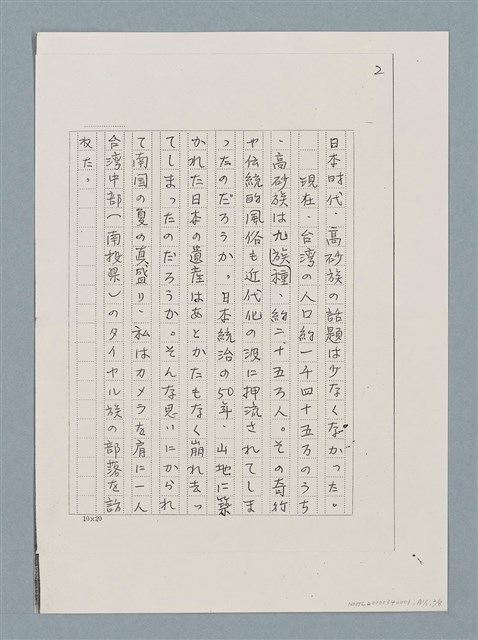 2
日本時代、高砂族の話題は少なくなかった。
現在、台湾の人口約一千四十五万のうち
、高砂族は九族種、約二、十五万人。その奇行
や伝統的風俗も近代化の波に押流されてしま
ったのだろうか。日本統治の50年、山地に築
かれた日本の遺産はあとかたもなく崩れ去っ
てしまったのだろうか。そんな思いにかられ
て南国の夏の真盛り、私はカメラを肩に一人
台湾中部(南投県)のタイヤル族の部落を訪
ねた。
10×20